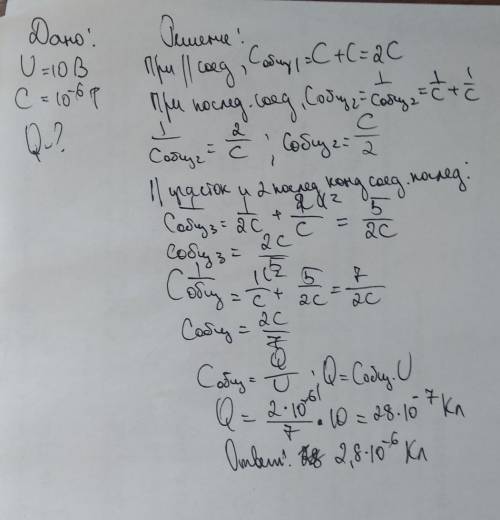 Дано:
U = 10 В
C = 10⁻⁶ Ф
Q - ?
Решение:
При || соед, Cобщ1 = C + C = 2C
При послед. соед, Cобщ2 = 1/Cобщ2 = 1/C + 1/C
1/Cобщ2 = 2/C ; Cобщ2 = C/2
|| участок и 2 послед конд соед. послед:
1/Cобщ3 = 1/2C + 2/C = 5/2C
Cобщ3 = 2C/5
1/Cобщ = 1/C + 5/2C = 7/2C
Cобщ = 2C/7
Cобщ = Q/U ; Q = Cобщ · U
Q = 2·10⁻⁶/7 · 10 = 28·10⁻⁷ Кл
Ответ: 2,8·10⁻⁶ Кл